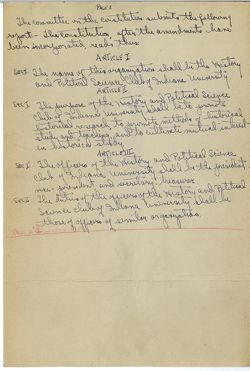 Page 1
The committee on the constitution submits the following
report - The constitution, after the amendments have
been incorporated, reads thus
ARTICLE I
Sec. I The name of this organization shall be the History
and Political Science Club of Indiana University.
ARTICLE II
Sec. I The purpose of the History and Political Science
Club of Indiana University shall be to promote
historical research, to promote methods of historical
study and teaching, and to cultivate mutual interest
in historical study.
ARTICLE III
Sec. I The officers of the History and Political Science
Club of Indiana University shall be the president,
vice-president and secretary-treasurer.
Sec. II The duties of the officers of the History and Political
Science Club of Indiana University shall be
those of officers of similar organizations.